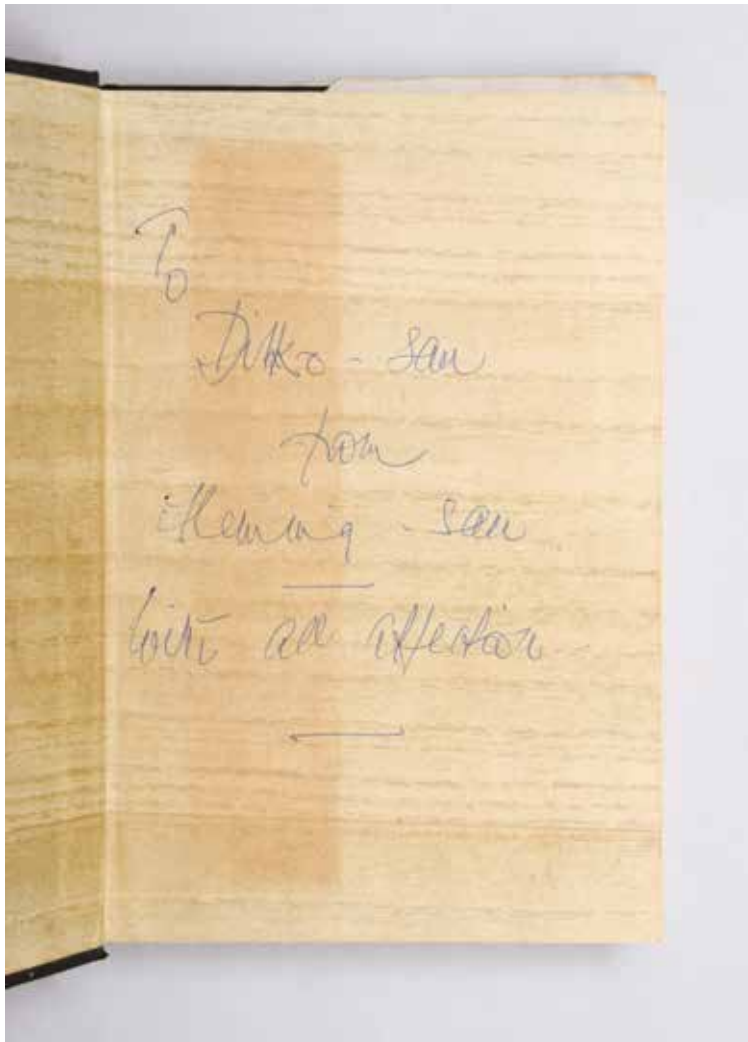 To
Dikko - san
from
Fleming - san
with all affection -